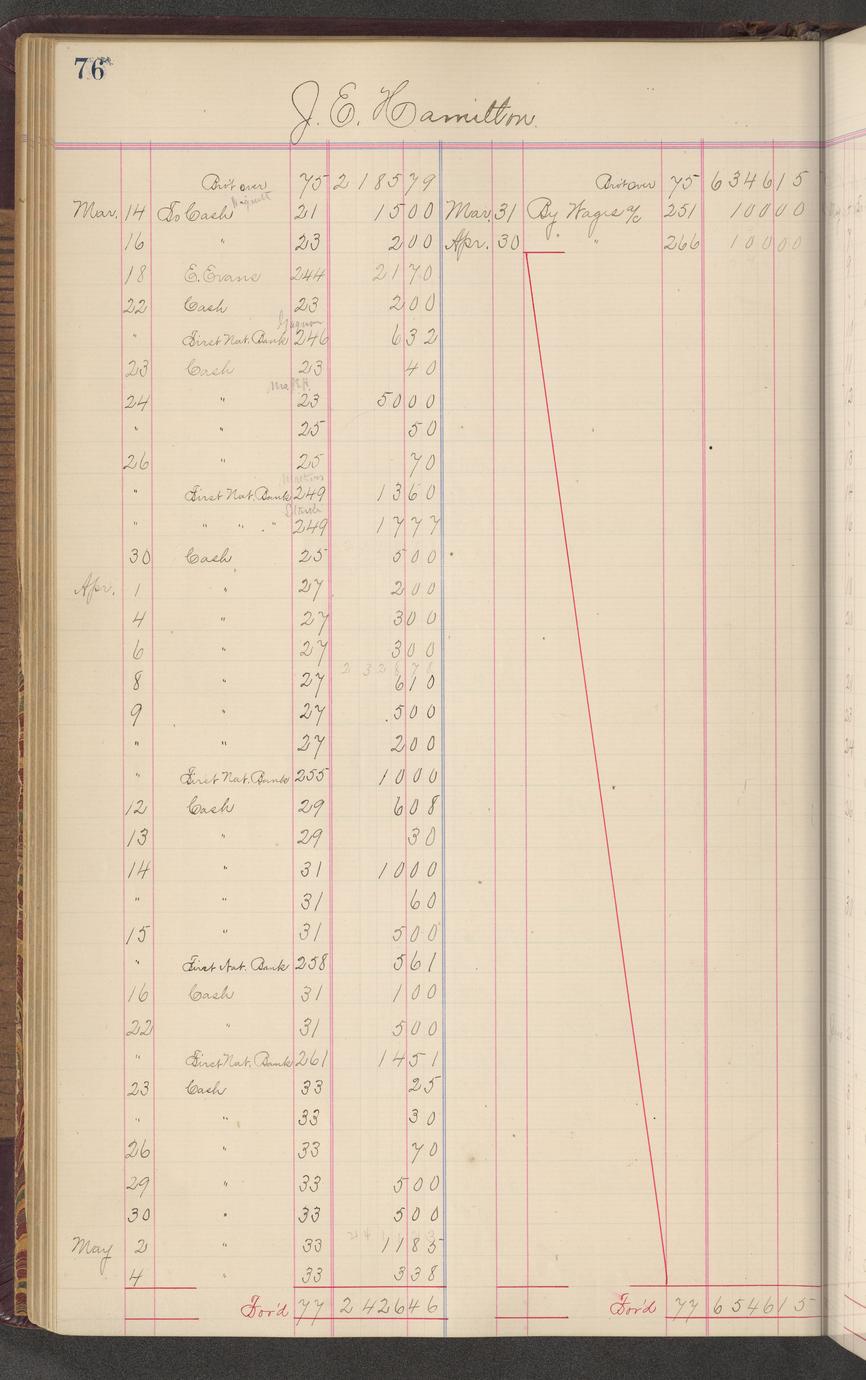 76
J. E. Hamilton
Bro't over 75 2 185 79 Bro't over 75 6 346 15
Mar. 14 To Cash 21 15 00 Mar. 31 By Wages a/c 251 100 00
16 " 23 2 00 Apr. 30 " " 266 100 00
18 E. Evans 244 21 70
22 Cash 23 2 00
" First Nat. Bank 246 6 32
23 Cash 23 40
24 " 23 50 00
" " 25 50
26 " 25 70
" First Nat. Bank 249 13 60
" " " " 249 17 77
30 Cash 25 5 00
Apr. 1 " 27 2 00
4 " 27 3 00
6 " 27 3 00
2 328 78
8 " 27 6 10
9 " 27 5 00
" " 27 2 00
" First Nat. Bank 255 10 00
12 Cash 29 6 08
13 " 29 30
14 " 31 10 00
" " 31 60
15 " 31 5 00
" First Nat. Bank 258 5 61
16 Cash 31 1 00
22 " 31 5 00
" First Nat. Bank 261 14 51
23 Cash 33 25
" " 33 30
26 " 33 70
29 " 33 5 00
30 " 33 5 00
May 2 " 33 11 85
4 " 33 3 38
For'd 77 2 426 46 For'd 77 6 546 15